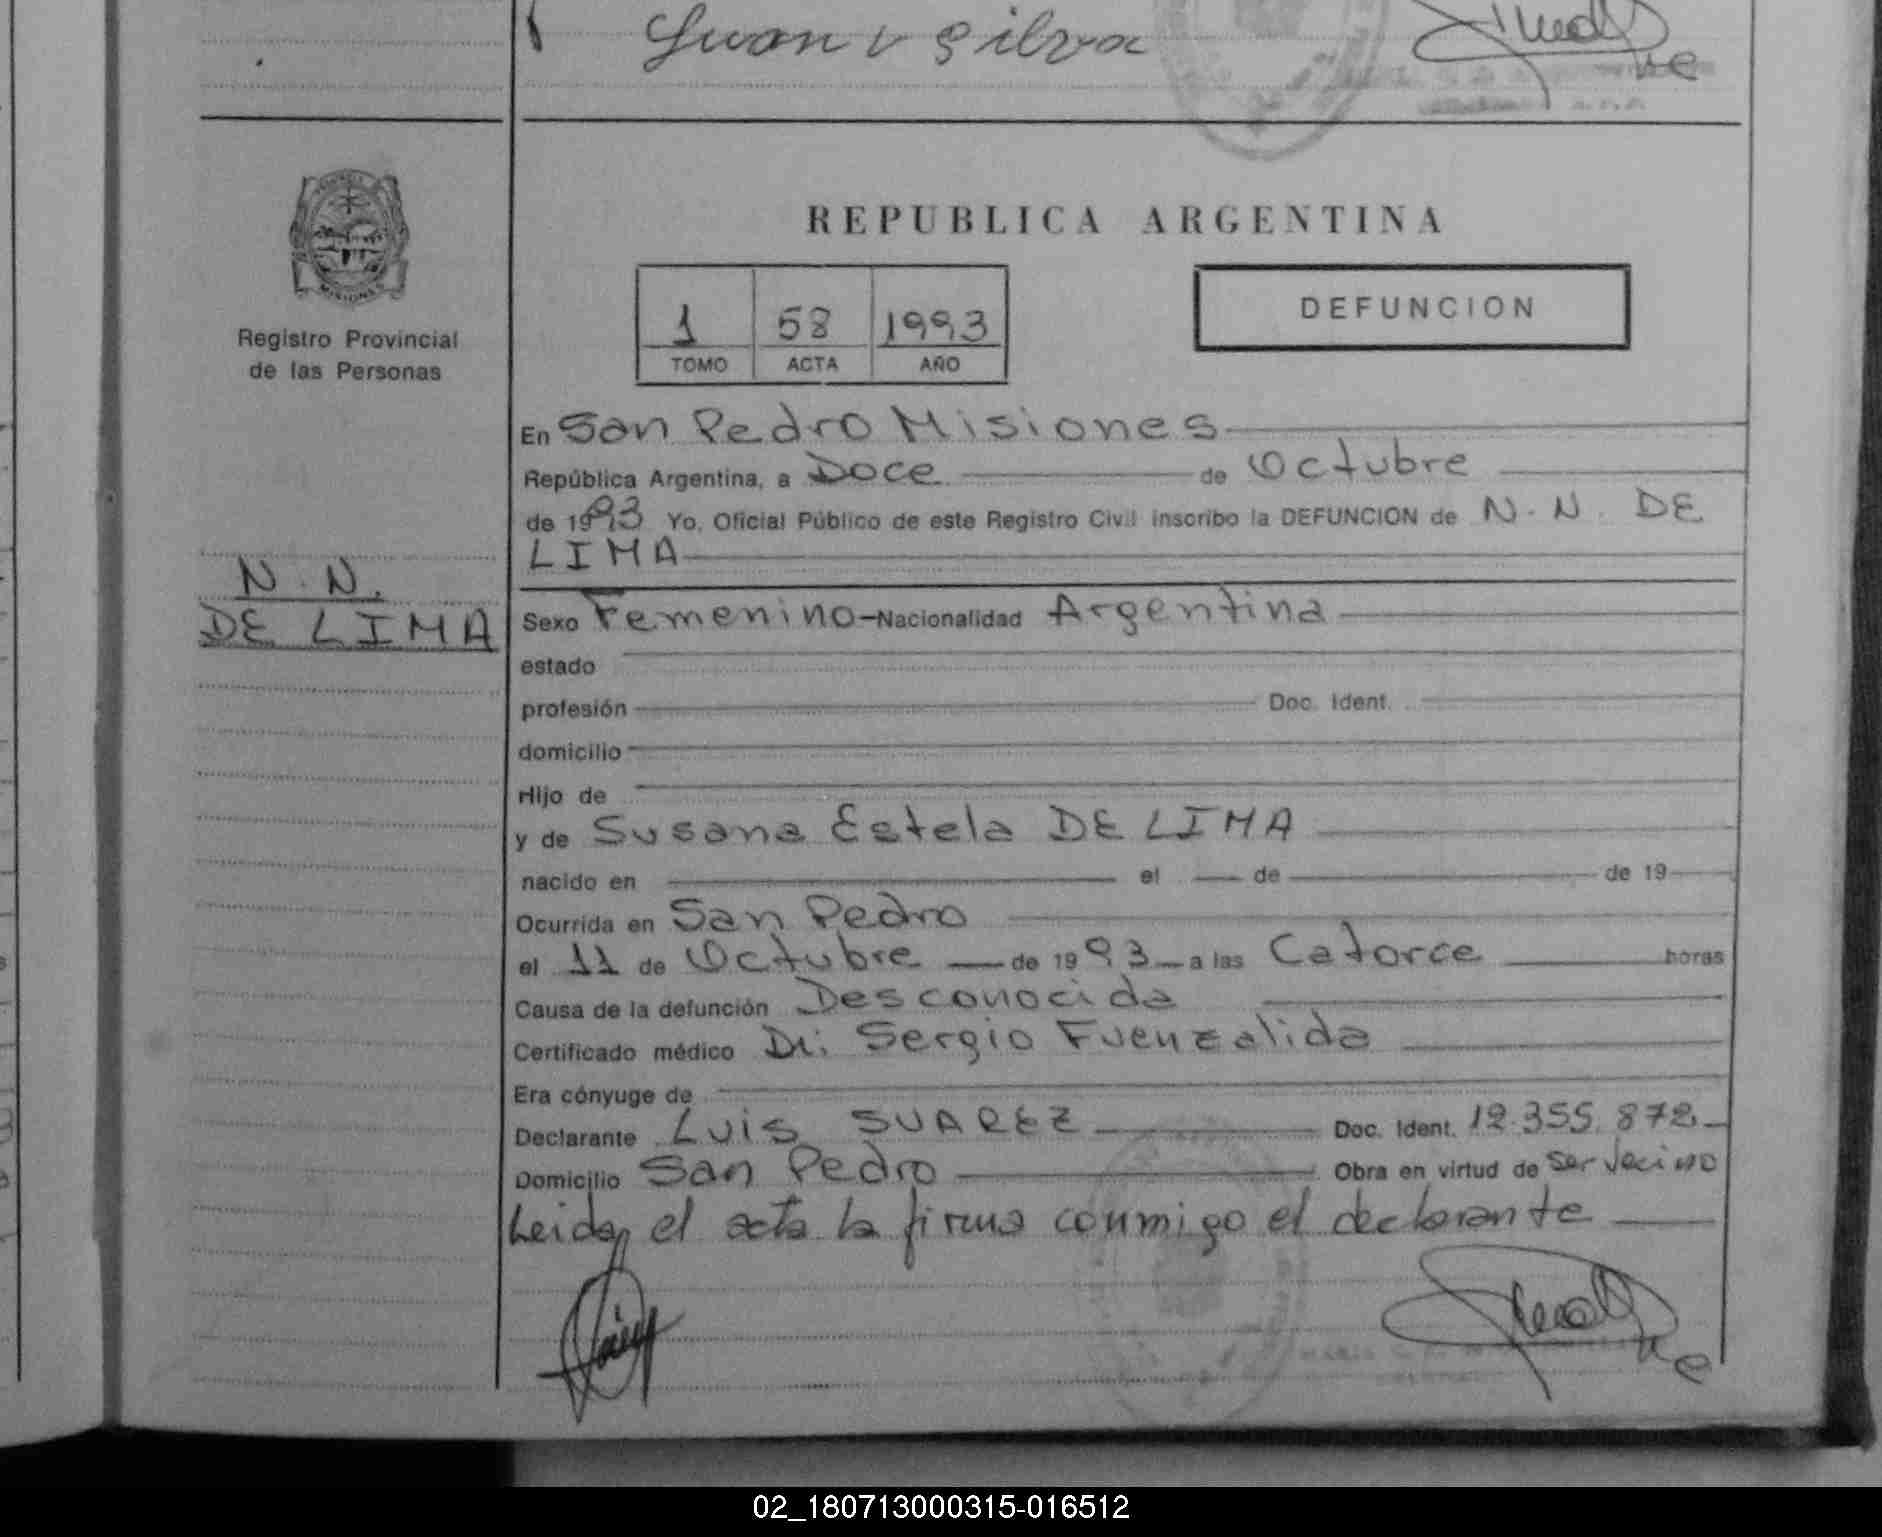 Juan v Silva
REPUBLICA ARGENTINA
Registro Provincial
de las Personas
1 58 1993
TOMO ACTA AÑO
DEFUNCION
En San Pedro Misiones
República Argentina, a Doce de Octubre
de 1993 Yo, Oficial Público de este Registro Civil inscribo la DEFUNCION de N. N. DE
LIMA
N. N.
DE LIMA
Sexo Femenino Nacionalidad Argentina
estado
profesión Doc. Ident.
domicilio
Hijo de
y de Susana Estela DE LIMA
nacido en el de de 19
Ocurrida en San Pedro
el 11 de Octubre de 1993 a las Catorce horas
Causa de la defunción Desconocida
Certificado médico Dr: Sergio Fuenzalida
Era cónyuge de
Declarante Luis SUAREZ Doc. Ident. 12.355.872
Domicilio San Pedro Obra en virtud de ser vecino
Leida el acta la firma conmigo el declarante
02_180713000315-016512